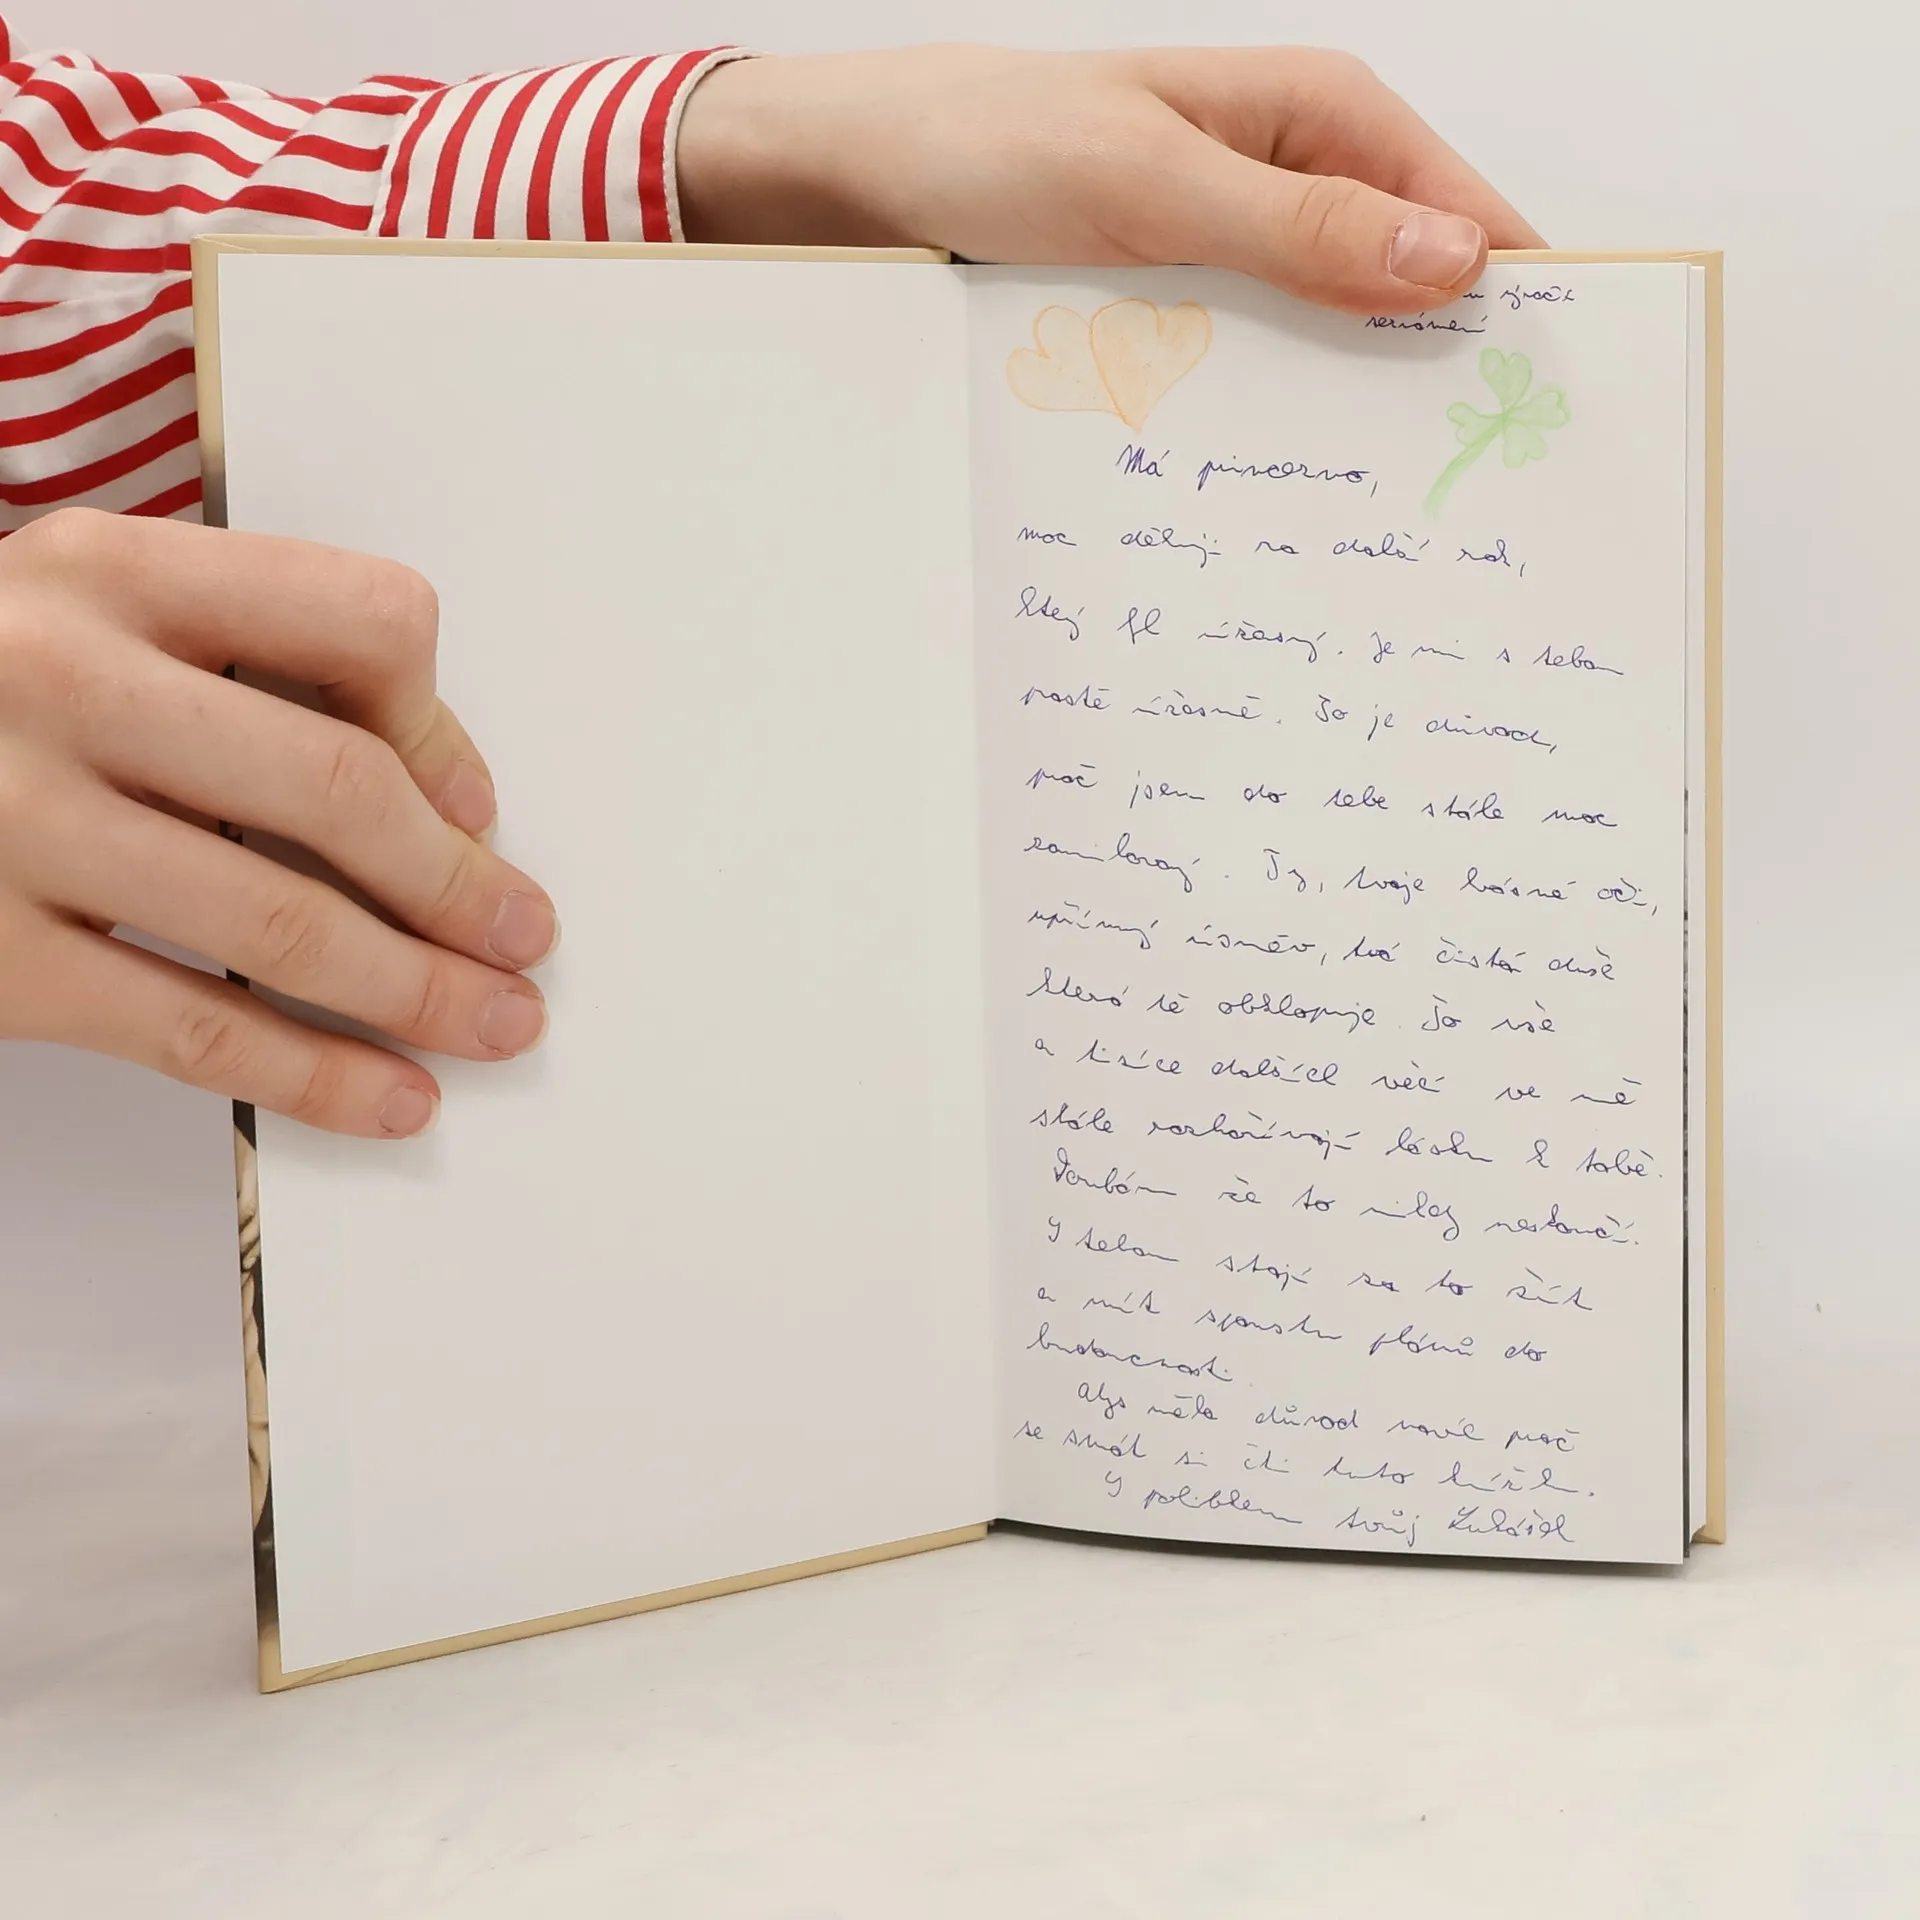 výročí
seznámení
Má princezno,
moc děkuji za další rok,
který byl úžasný. Je mi s tebou
prostě úžasně. To je důvod,
proč jsem do tebe stále moc
zamilovaný. Ty, tvoje krásné oči,
upřímný úsměv, tvá čistá duše
která tě obklopuje. To vše
a tisíce dalších věcí ve mě
stále rozhořívají lásku k tobě.
Doufám že to nikdy neskončí.
S tebou stojí za to žít
a mít spoustu plánů do
budoucnosti.
Abys měla důvod navíc proč
se smát si čti tuto knížku.
S polibkem tvůj Lukášek